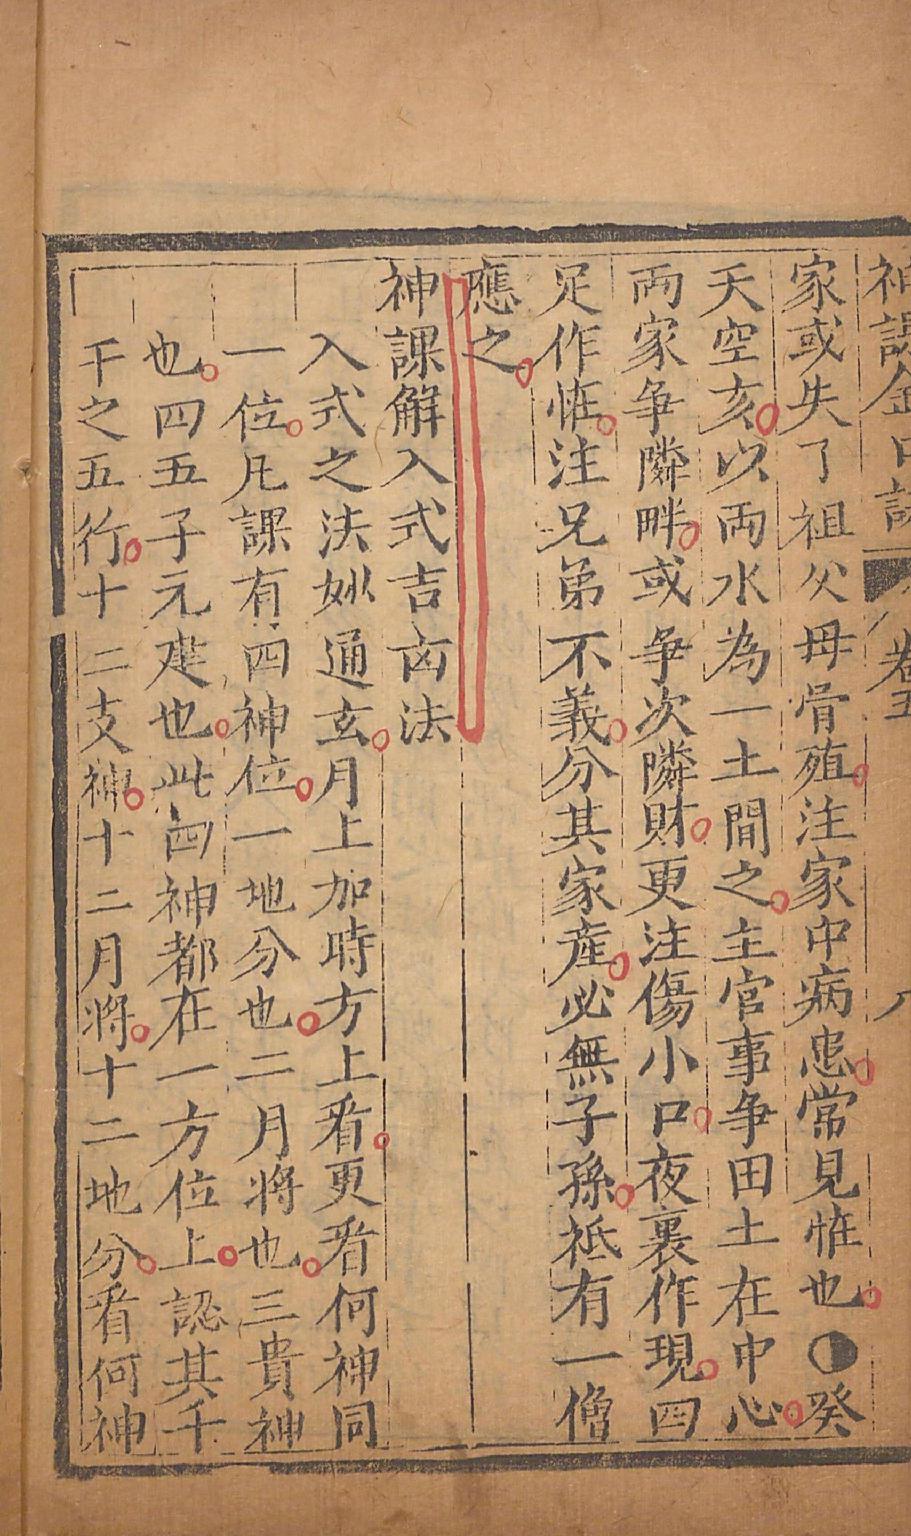 神課金口訣 卷五 八
家或失了祖父母骨殖注家中病患常見恠也◐癸
天空亥以両水為一土間之主官事争田土在中心
両家争隣畔或争次隣財更注傷小口夜裏作現四
足作恠注兄弟不義分其家産必無子孫祗有一僧
應之
神課解入式吉凶法
入式之法妙通玄月上加時方上看更看何神同
一位凡課有四神位一地分也二月将也三貴神
也四五子元建也此四神都在一方位上認其千
干之五行十二支神十二月将十二地分看何神